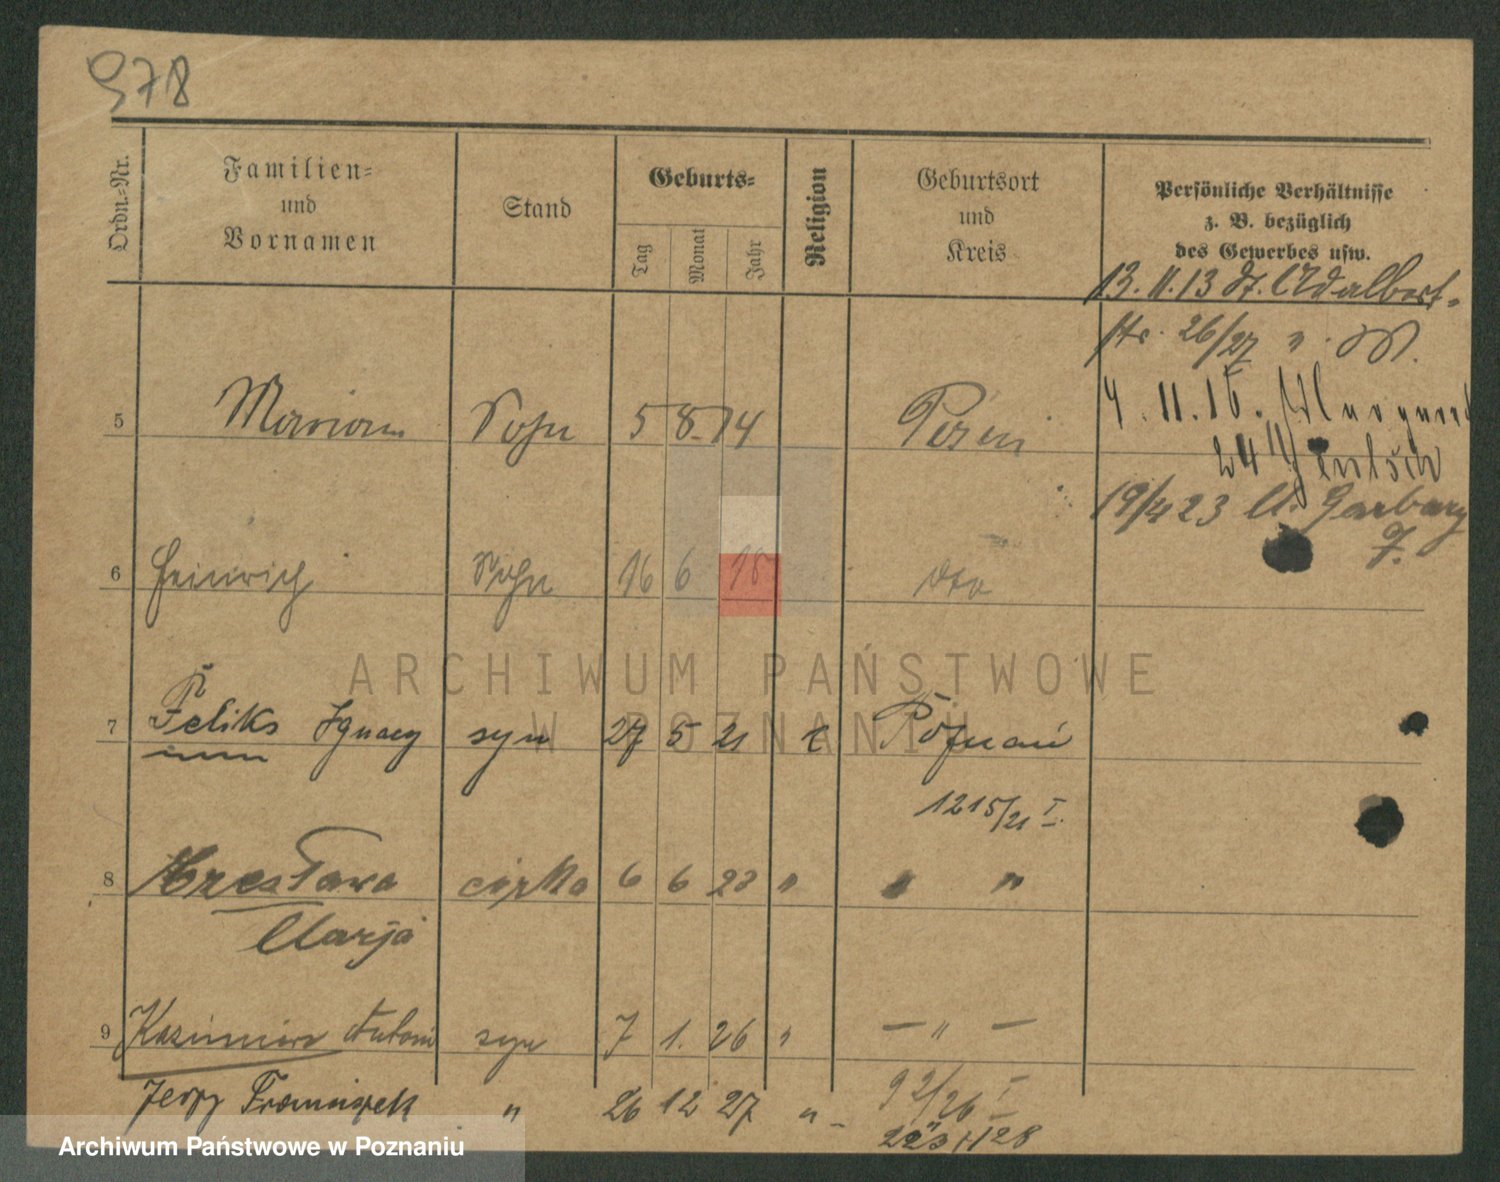 978
Ordn.-Nr.
Familien-
und
Vornamen
Stand
Geburts-
Tag
Monat
Jahr
Religion
Geburtsort
und
Kreis
Persönliche Verhältnisse
z. B. bezüglich
des Gewerbes usw.
13. 11. 13 St. Adalbert-
str. 26/27
5 Marian Sohn 5 8. 14 Posen
4. 11. 16.
24
19/4 23 Garbary
7.
6 Heinrich Sohn 16 6 18 dto
7 Feliks Ignacy syn 27 5 21 k Poznań
1215/21 I
8 Czesława córka 6 6 23 " " "
Marja
9 Kazimierz Antoni syn 7 1. 26 " — " —
92/26 I
Jerzy Franciszek " 26 12 27 " –
ARCHIWUM PAŃSTWOWE
W POZNANIU
Archiwum Państwowe w Poznaniu